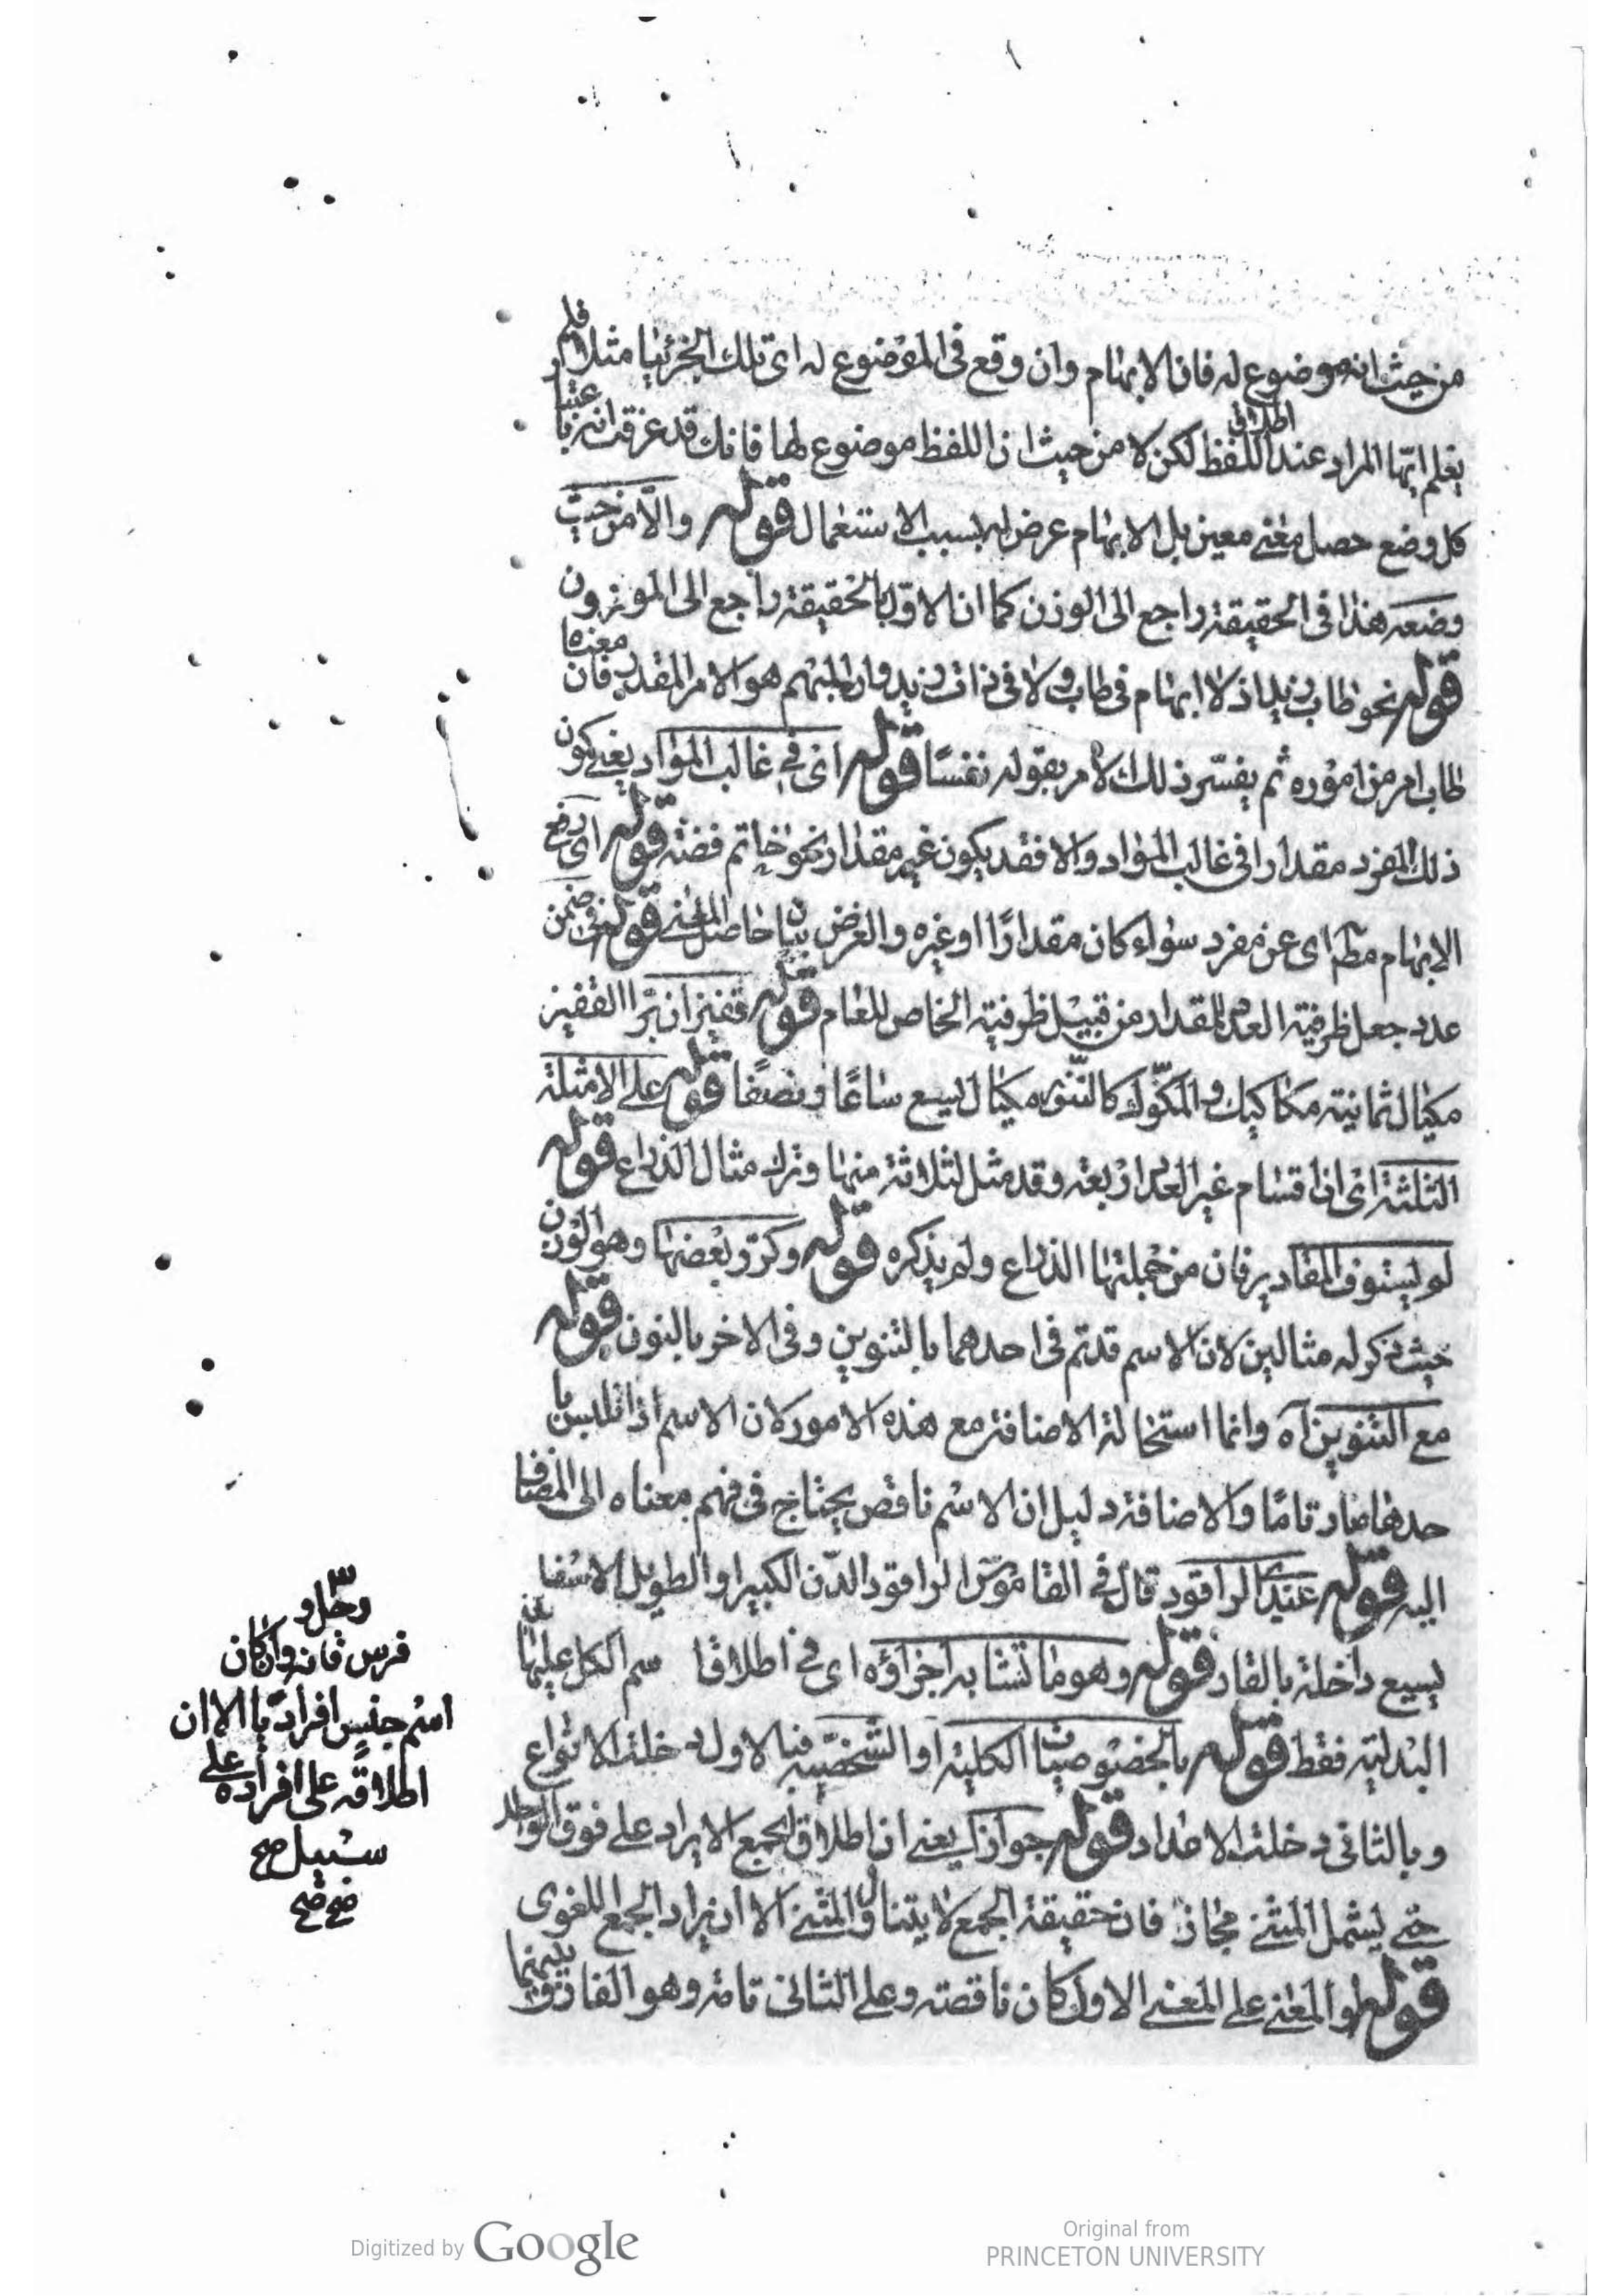 من حيث انه موضوع له فان الابهام وان وقع فى الموضوع له اى تلك الجزئيا مثلا فلم
يعلم ايها المراد عند اطلاق اللفظ لكن لا من حيث ان اللفظ موضوع لها فانك قد عرفت انه باعتبا
كل وضع حصل معنى معين بل الابهام عرض له بسبب الاستعمال قوله والا من حيث
وضعه هذا فى الحقيقة راجع الى الوزن كما ان الاول بالحقيقة راجع الى الموزون
قوله نحو طاب زيد اذ لا ابهام فى طاب ولا فى ذات زيد وان المبهم هو الامر المقدر فان معناه
طاب امر من اموره ثم يفسر ذلك الامر بقوله نفسًا قوله اى فى غالب المواد يعنى كون
ذلك المفرد مقدارا فى غالب المواد والا فقد يكون غير مقدار نحو خاتم فضة قوله اى رفع
الابهام مط اى عن مفرد سواء كان مقدارًا او غيره والغرض بيان حاصل المعنى قوله فى ضمن
عدد جعل ظرفية العدد للمقدار من قبيل ظرفية الخاص للعام قوله قفيزان برّا القفيز
مكيال ثمانية مكاكيك والمكّوك كالتنّور مكيال يسع صاعًا ونصفًا قوله على الامثلة
الثلثة اى اقسام غير العدد اربعة وقد مثل لثلاثة منها وترك مثال الذراع قوله
لو يستوف المقادير فان من جملتها الذراع ولم يذكره قوله وكرّر بعضها وهو الوزن
حيث ذكر له مثالين لان الاسم قد تم فى احدهما بالتنوين وفى الاخر بالنون قوله
مع التنوين آه وانما استحالة الاضافة مع هذه الامور لان الاسم اذا تلبس با
حدها صار تامًا والاضافة دليل ان الاسم ناقص يحتاج فى فهم معناه الى المضاف
اليه قوله عندى الراقود قال فى القاموس الراقود الدّن الكبير او الطويل الاسفل
يسيع داخلة بالقار قوله وهو ما تشابه اجزاؤه اى فى اطلاق سم الكل عليها
البدلية فقط قوله بالخصوصيات الكلية او الشخصية فبالاول دخلت الانواع
وبالثانى دخلت الاعداد قوله جواز يعنى ان اطلاق الجمع الايراد على فوق الواحد
حتى يشمل المثنى مجاز فان حقيقة الجمع لا يتناول المثنى الا ان يراد الجمع اللغوى
قوله او المعنى على المعنى الاول كان ناقصة وعلى الثانى تامة وهو الفارق بينهما
رجل و
فرس فانه وان كان
اسم جنس افراديّا الا ان
اطلاقه على افراده على
سبيل صح
صح صح
Digitized by Google
Original from
PRINCETON UNIVERSITY